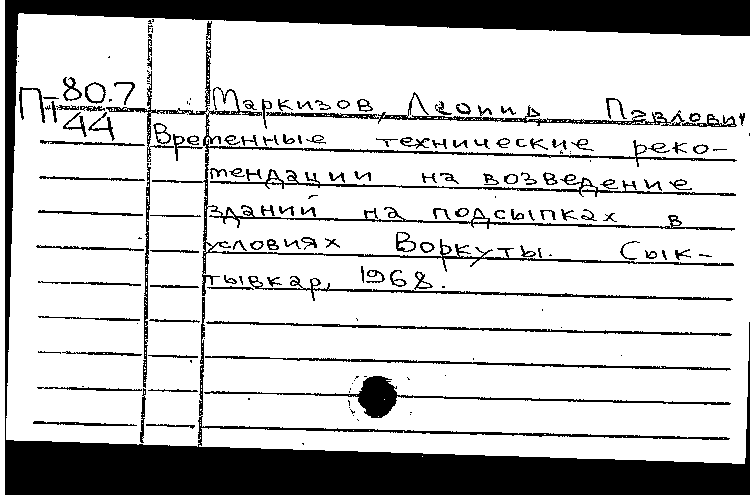 Пт 80.7
44
Маркизов, Леонид Павлович
Временные технические реко-
мендации на возведение
зданий на подсыпках в
условиях Воркуты. Сык-
тывкар, 1968.